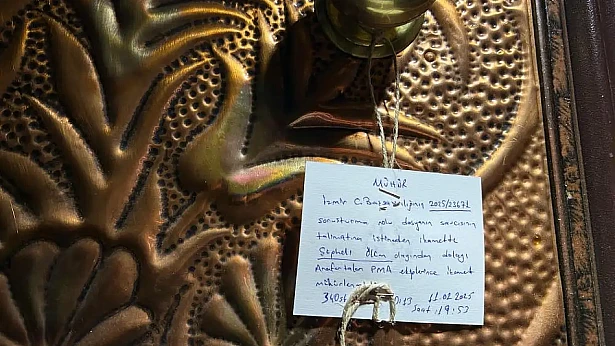 MÜHÜR
İzmir C. Başsavcılığının 2025/23671
soruşturma nolu dosyanın savcısının
talimatına istinaden ikamette
Şüpheli Ölüm olayından dolayı
Anafartalar PMA ekiplerince ikamet
11.02.2025
Saat: 19:53